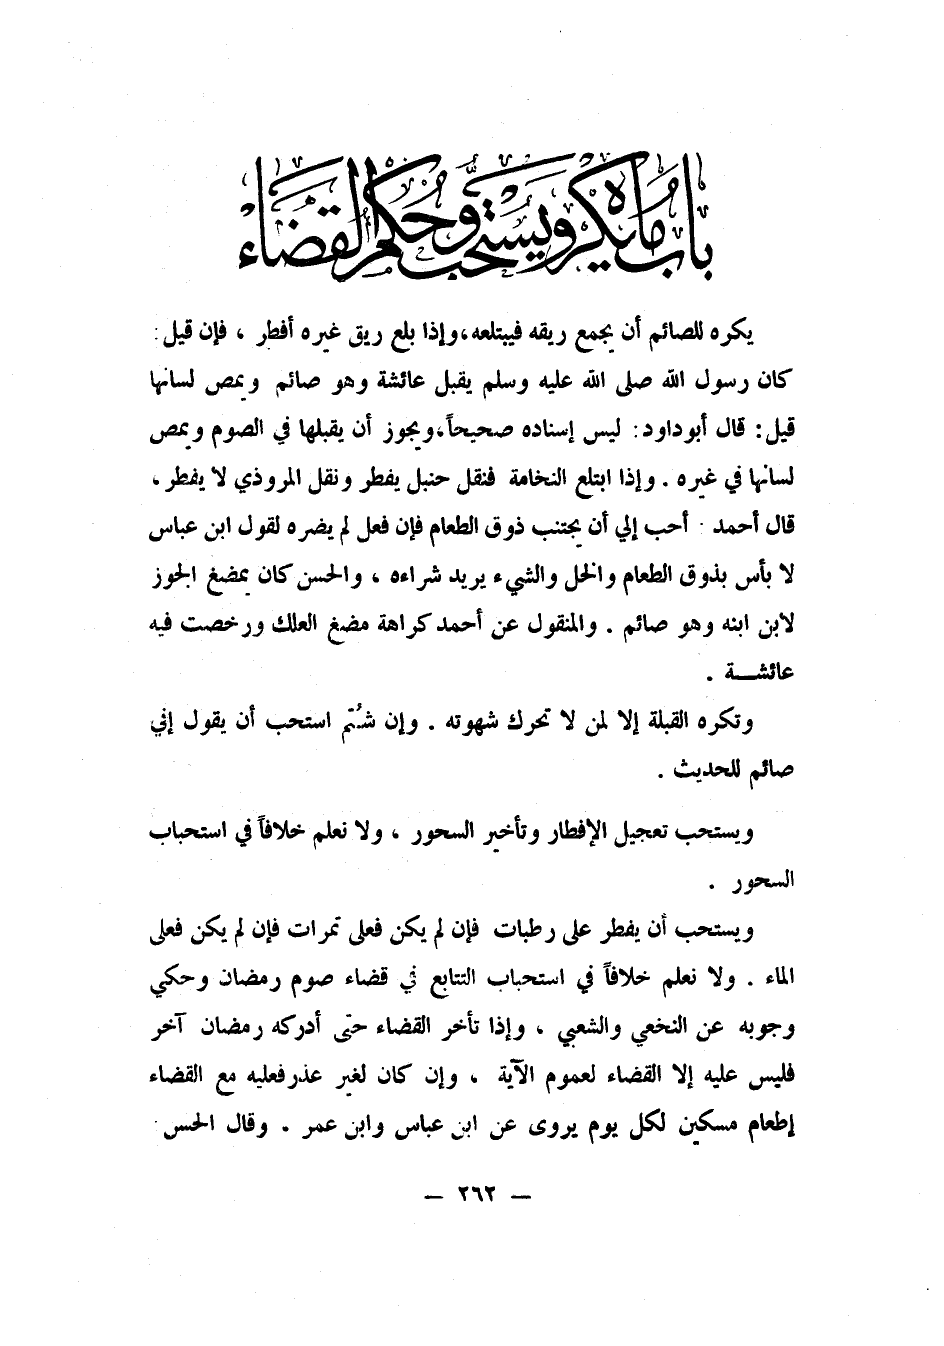 باب ما يكره ويستحب وحكم القضاء
يكره للصائم أن يجمع ريقه فيبتلعه، وإذا بلع ريق غيره أفطر ، فإن قيل :
كان رسول الله صلى الله عليه وسلم يقبل عائشة وهو صائم ويمص لسانها
قيل : قال أبو داود : ليس إسناده صحيحاً، ويجوز أن يقبلها في الصوم ويمص
لسانها في غيره . وإذا ابتلع النخامة فنقل حنبل يفطر ونقل المروذي لا يفطر ،
قال أحمد : أحب إلي أن يجتنب ذوق الطعام فإن فعل لم يضره لقول ابن عباس
لا بأس بذوق الطعام والخل والشيء يريد شراءه ، والحسن كان يمضغ الجوز
لابن ابنه وهو صائم . والمنقول عن أحمد كراهة مضغ العلك ورخصت فيه
عائشــة .
وتكره القبلة إلا لمن لا تحرك شهوته . وإن شُتم استحب أن يقول إني
صائم للحديث .
ويستحب تعجيل الإفطار وتأخير السحور ، ولا نعلم خلافاً في استحباب
السحور .
ويستحب أن يفطر على رطبات فإن لم يكن فعلى تمرات فإن لم يكن فعلى
الماء . ولا نعلم خلافاً في استحباب التتابع في قضاء صوم رمضان وحكي
وجوبه عن النخعي والشعبي ، وإذا تأخر القضاء حتى أدركه رمضان آخر
فليس عليه إلا القضاء لعموم الآية ، وإن كان لغير عذر فعليه مع القضاء
إطعام مسكين لكل يوم يروى عن ابن عباس وابن عمر . وقال الحسن
— ٢٦٢ —